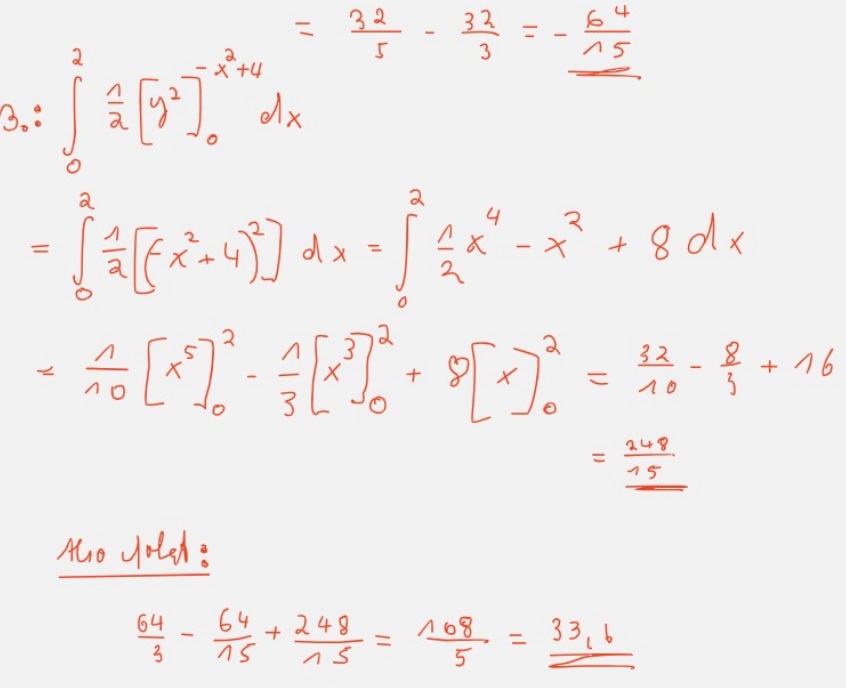 = 32/5 - 32/3 = - 64/15
3.: ∫₀² 1/2 [y²]₀^(-x²+4) dx
= ∫₀² 1/2 [(-x²+4)²] dx = ∫₀² 1/2 x⁴ - x² + 8 dx
= 1/10 [x⁵]₀² - 1/3 [x³]₀² + 8[x]₀² = 32/10 - 8/3 + 16
= 248/15
Also folgt:
64/3 - 64/15 + 248/15 = 168/5 = 33,6